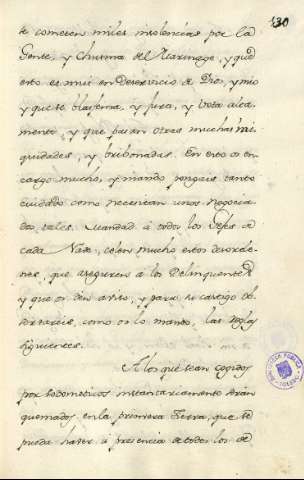 130
se cometen miles insolencias por la
Gente, y Chusma del Marinage, y que
esto es mui en Deservicio de Dios, y mio
y que se blasfema, y jura, y vota alta
mente, y que pasan otras muchas ini
quidades, y bribonadas. En esto os en
cargo mucho, y mando pongais tanto
cuidado como necesitan unos negocia
dos tales. Mandad à todos los Gefes de
cada Nave, celen mucho estos desorde
nes, que aseguren à los Delinquentes
y que os den aviso, y para su castigo ob
servareis, como os lo mando, las reglas
siguientes.
A los que sean cogidos
por Sodometicos instantaneamente serán
quemados en la primera Tierra, que se
pueda hacer à presencia de todos los de
BIBLIOTECA PUBLICA
TOLEDO